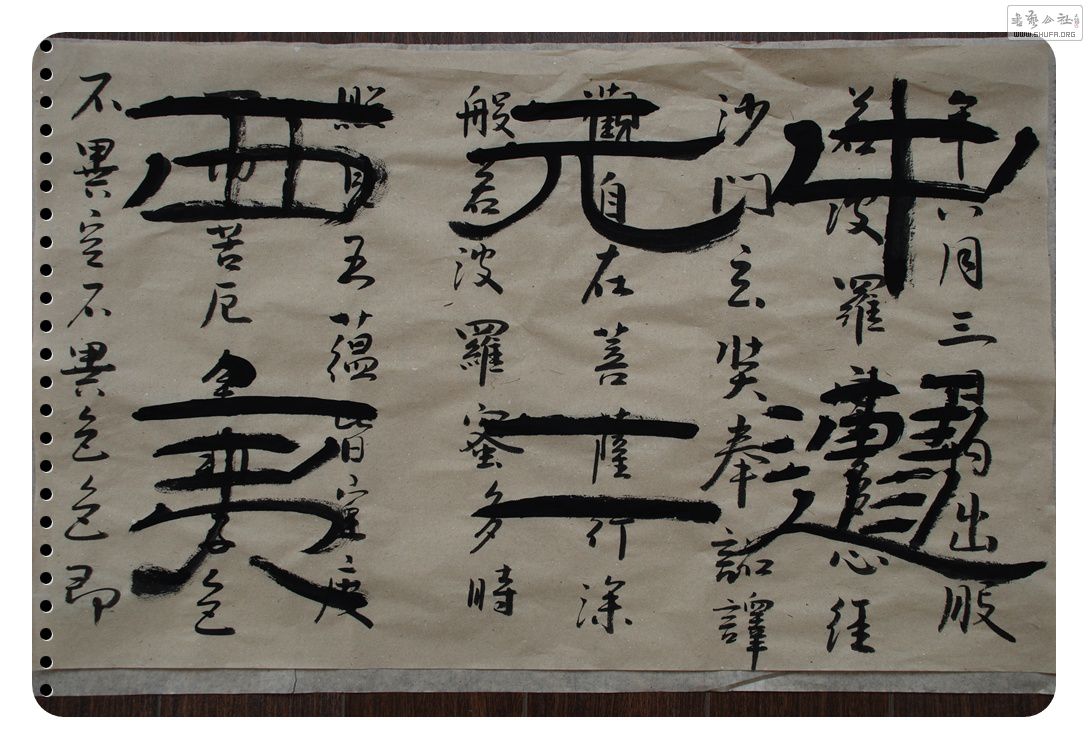 年八月三日内出般
若波羅蜜多心経
沙門玄奘奉詔譯
觀自在菩薩行深
般若波羅蜜多時
照見五蘊皆空度
一切苦厄舍利子色
不異空不異色色即
元二
西夷
书艺公社
WWW.SHUFA.ORG